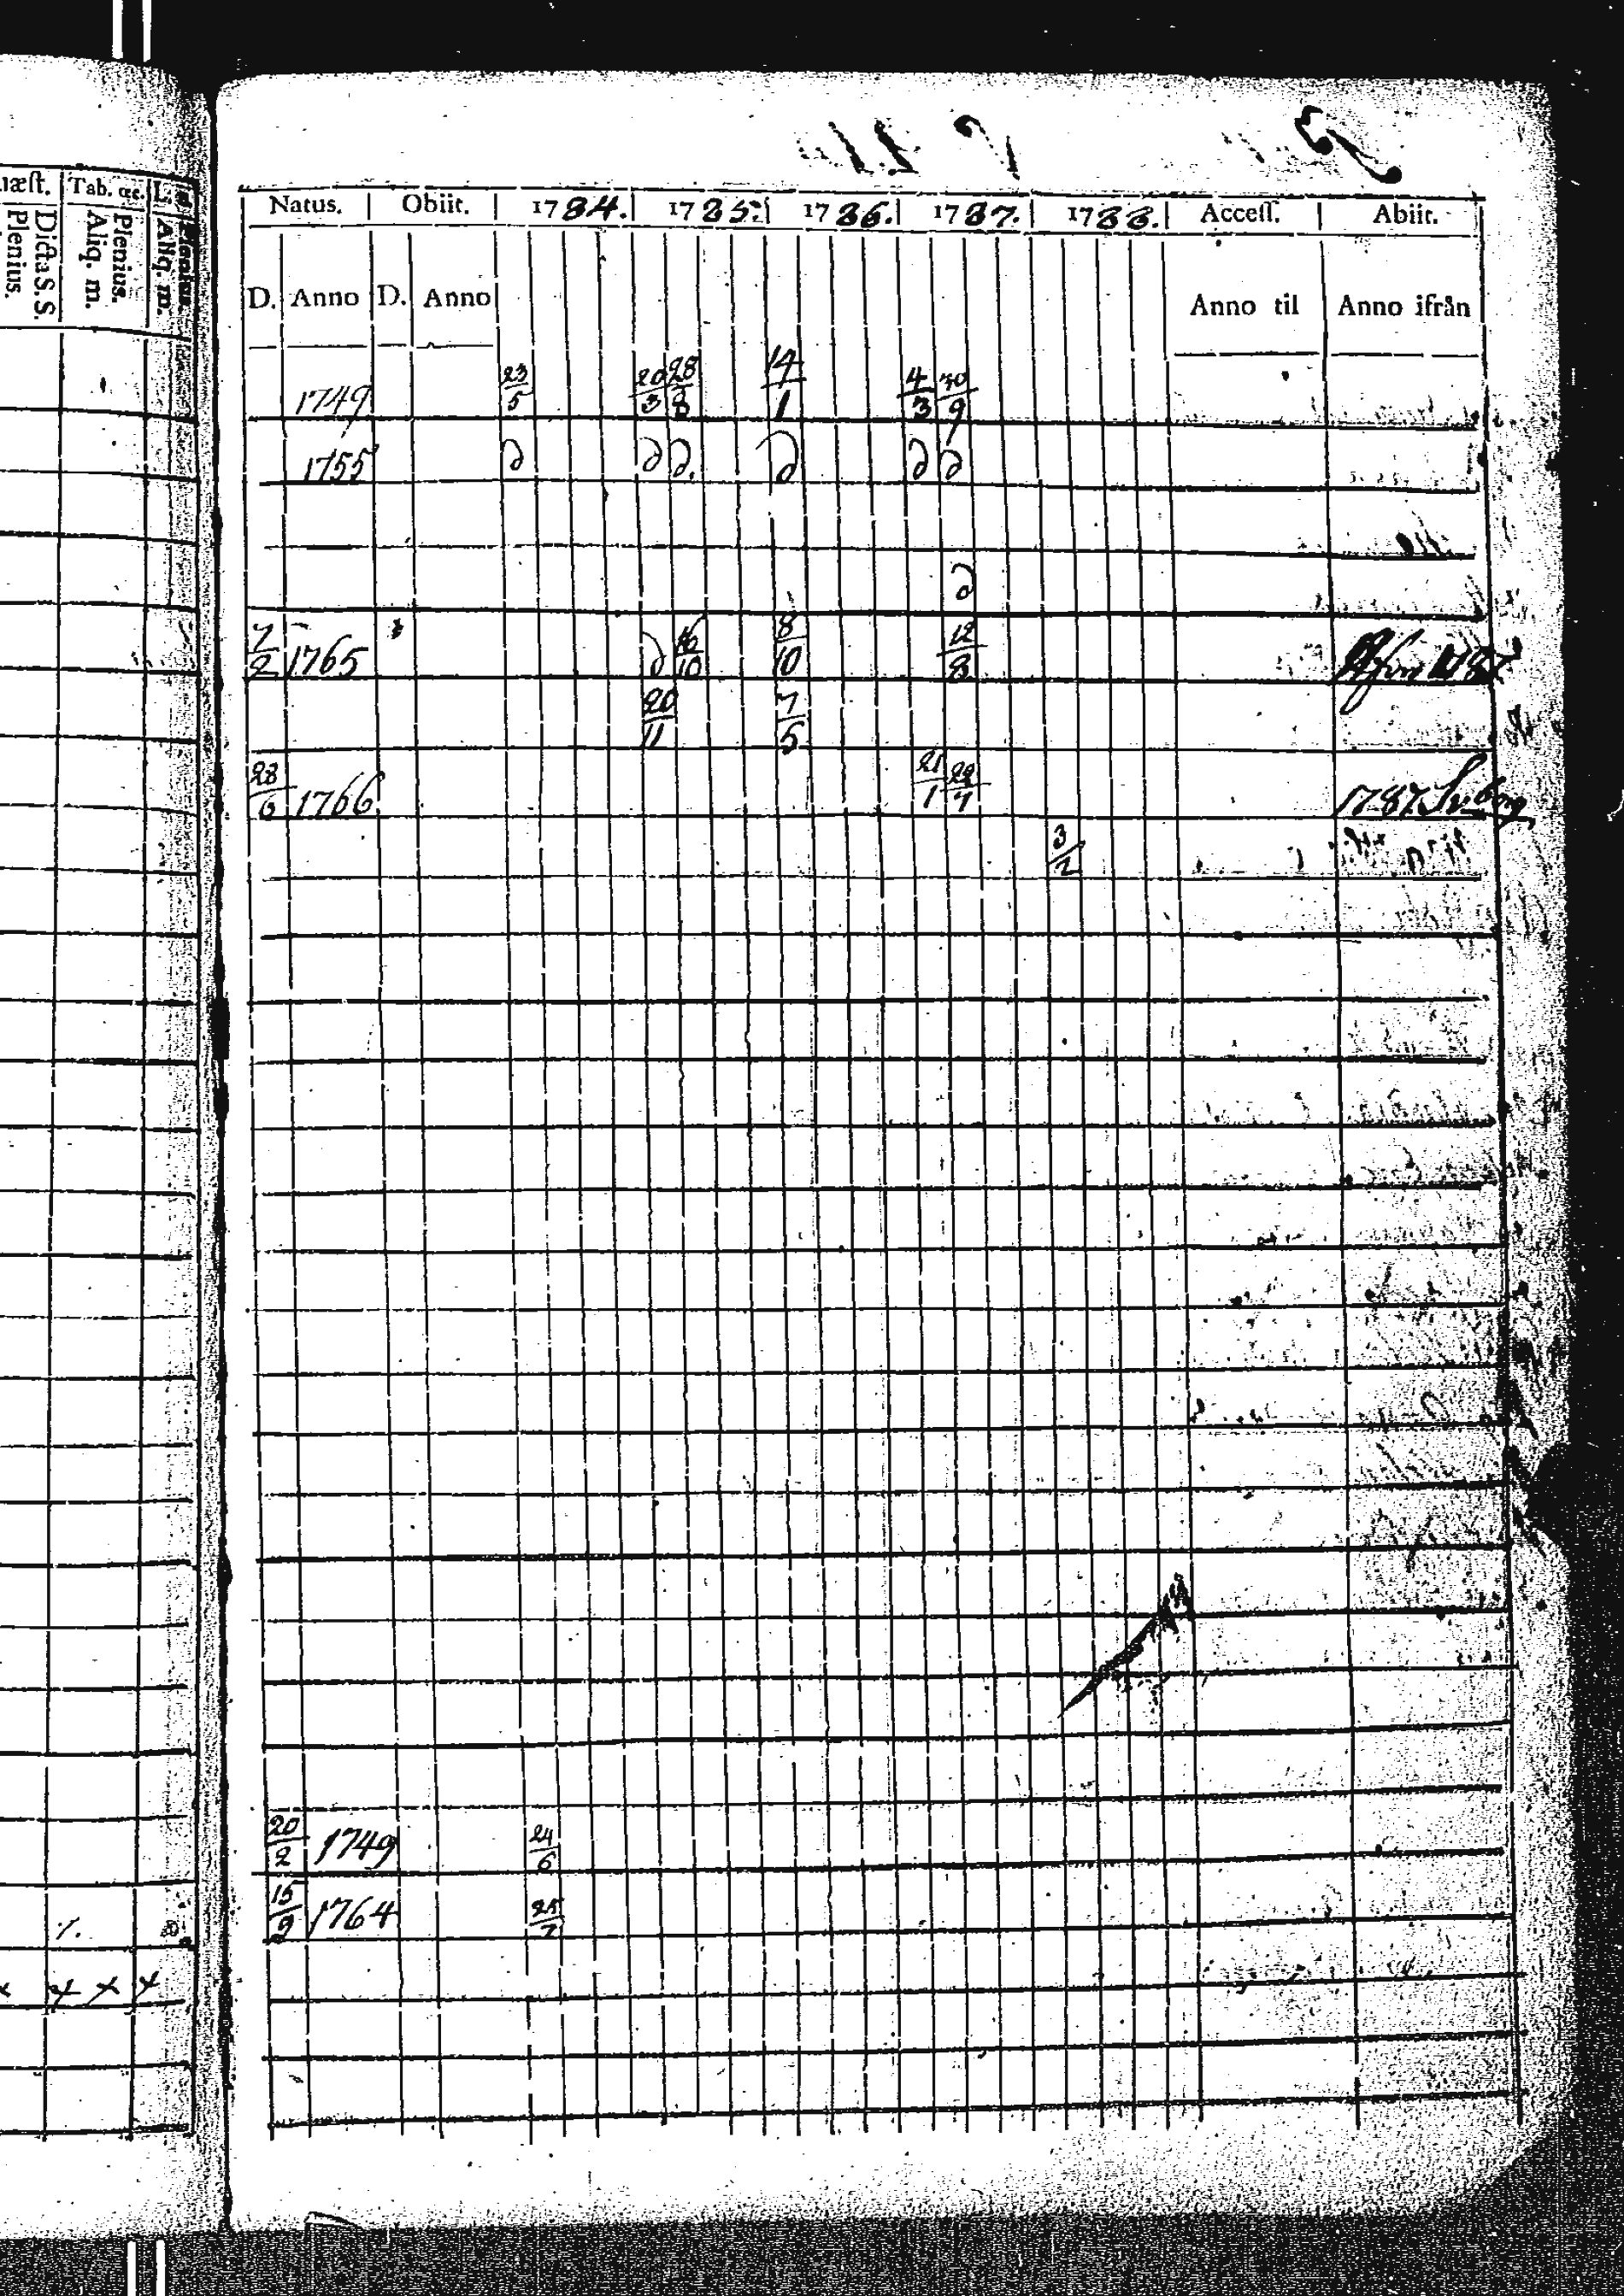 Quæst. Tab. œc.
Dicta S. S.
Plenius.
Plenius.
Aliq. m.
Plenius.
Aliq. m.
Natus. Obiit. 1784. 1785. 1786. 1787. 1788. Access. Abiit.
D. Anno D. Anno Anno til Anno ifrån
1749 23/5 20/3 28/8 14/1 4/3 30/9
1755 d d d. d d d
d
7/2 1765 d 16/10 8/10 12/8
20/11 7/5
28/6 1766 21/1 29/7 1787
3/2
20/2 1749 24/6
15/9 1764 25/7